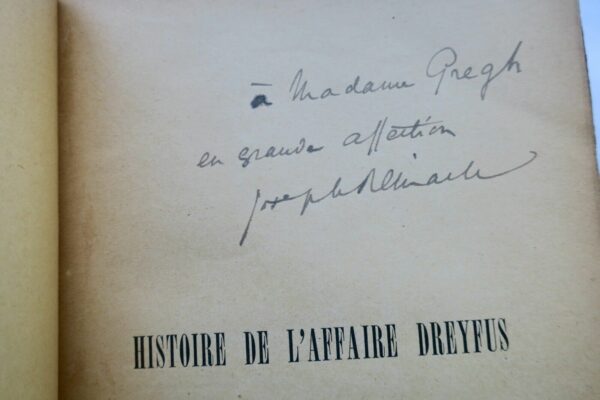 à Madame Gregh
en grande affection
Joseph Reinach
HISTOIRE DE L'AFFAIRE DREYFUS